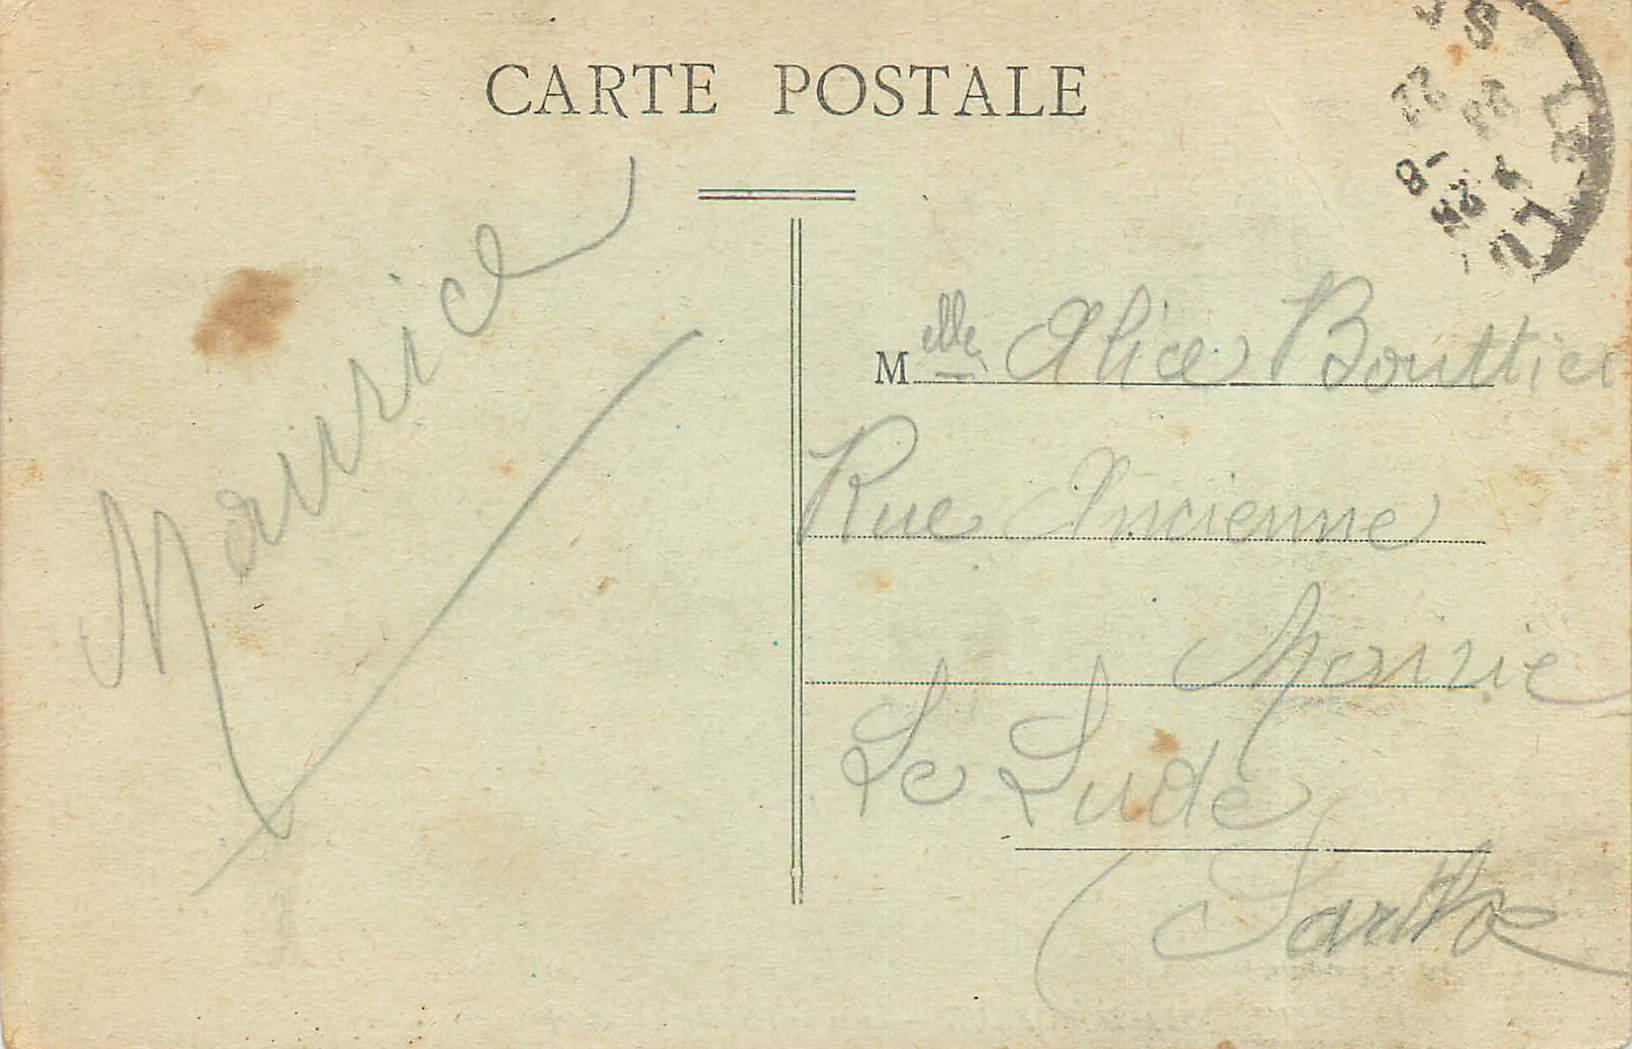 CARTE POSTALE
Maurice
Melle Alice Bouttier
Rue Ancienne
Mairie
Le Lude
Sarthe